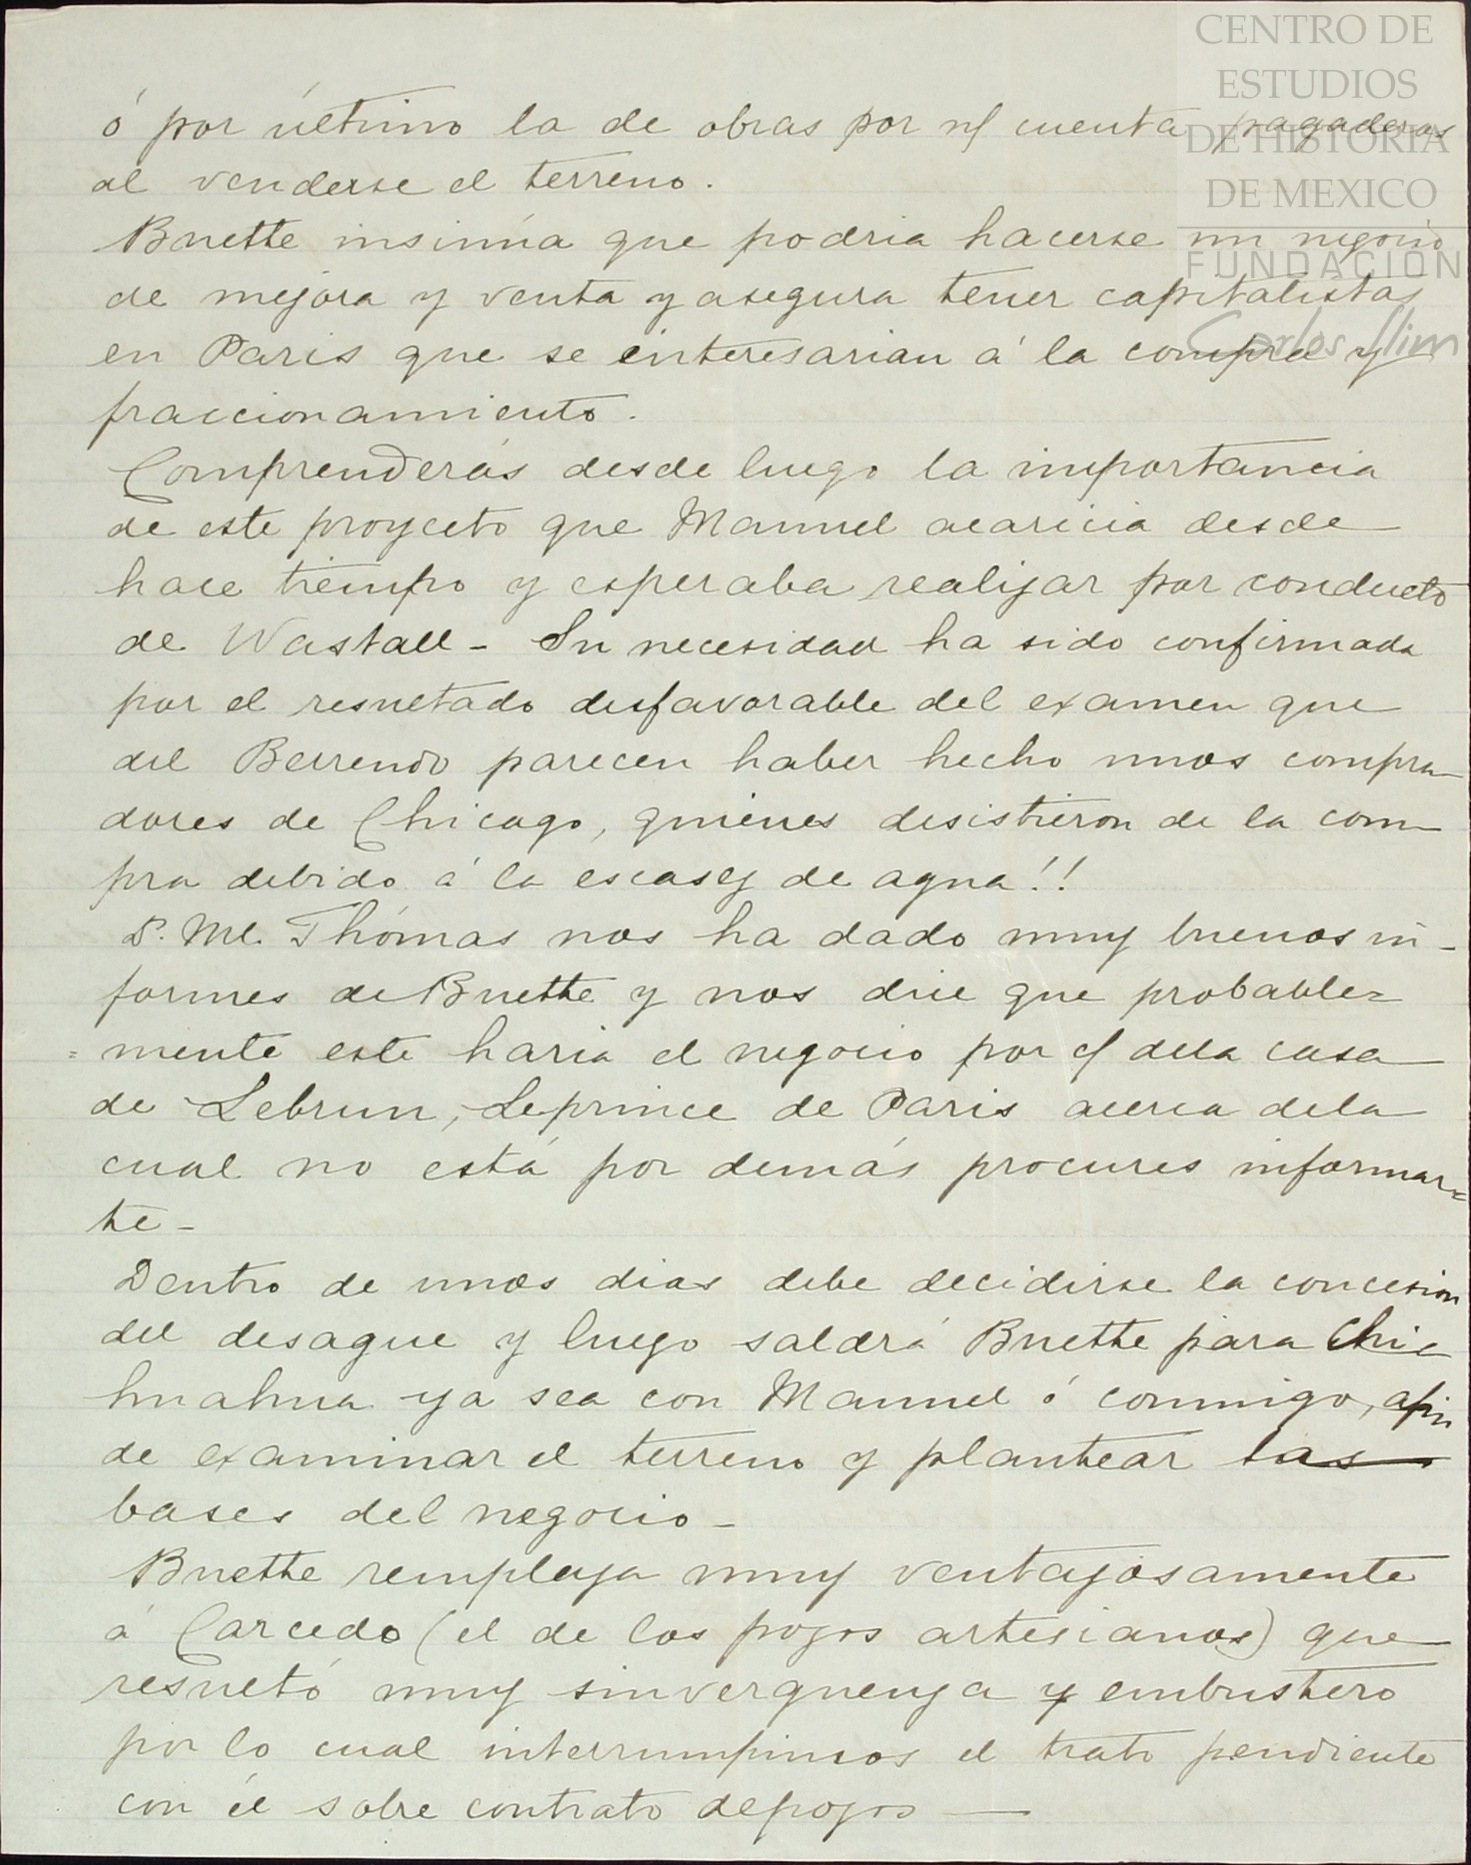 CENTRO DE
ESTUDIOS
DE HISTORIA
DE MEXICO
FUNDACIÓN
Carlos Slim
ó por último la de obras por n/ cuenta pagaderas
al venderse el terreno.
Buette insinúa que podria hacerse un negocio
de mejora y venta y asegura tener capitalistas
en Paris que se interesarian á la compra y
fraccionamiento.
Comprenderás desde luego la importancia
de este proyecto que Manuel acaricia desde
hace tiempo y esperaba realizar por conducto
de Wastall - Su necesidad ha sido confirmada
por el resultado desfavorable del examen que
del Berrendo parecen haber hecho unos compra-
dores de Chicago, quienes desistieron de la com-
pra debido á la escasez de agua!!
D. Ml. Thómas nos ha dado muy buenos in-
formes de Buette y nos dice que probable=
=mente este haria el negocio por c/ dela casa
de Lebrun, Leprince de Paris acerca dela
cual no está por demás procures informar=
te-
Dentro de unos dias debe decidirse la concesion
del desague y luego saldrá Buette para Chi=
huahua ya sea con Manuel ó conmigo, afin
de examinar el terreno y plantear las
bases del negocio-
Buette remplaza muy ventajosamente
á Carcedo (el de los pozos artesianos) que
resultó muy sinverguenza y embustero
por lo cual interrumpimos el trato pendiente
con él sobre contrato depozos—